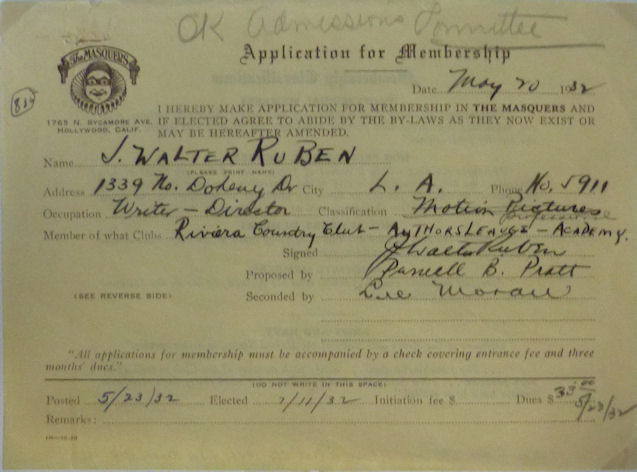 OK Admissions Committee
Application for Membership
The MASQUERS
Date May 20 1932
832
1765 N. SYCAMORE AVE.
HOLLYWOOD, CALIF.
I HEREBY MAKE APPLICATION FOR MEMBERSHIP IN THE MASQUERS AND
IF ELECTED AGREE TO ABIDE BY THE BY-LAWS AS THEY NOW EXIST OR
MAY BE HEREAFTER AMENDED.
Name J. WALTER RUBEN
(PLEASE PRINT NAME)
Address 1339 No. Doheny Dr City L. A. Phone Ho. 5911
Occupation Writer - Director Classification Motion Pictures
professional
Member of what Clubs Riviera Country Club - AUTHORS LEAUGE - ACADEMY.
Signed J Walter Ruben
Proposed by Purnell B. Pratt
(SEE REVERSE SIDE) Seconded by Lee Moran
"All applications for membership must be accompanied by a check covering entrance fee and three
months' dues."
(DO NOT WRITE IN THIS SPACE)
Posted 5/23/32 Elected 7/11/32 Initiation fee $ Dues $ 33.00
5/23/32
Remarks: